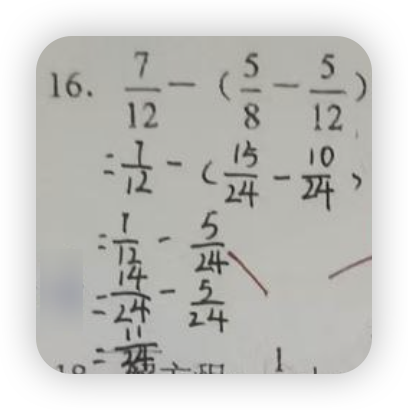 16. 7/12 - (5/8 - 5/12)
= 7/12 - (15/24 - 10/24)
= 7/12 - 5/24
= 14/24 - 5/24
= 11/24